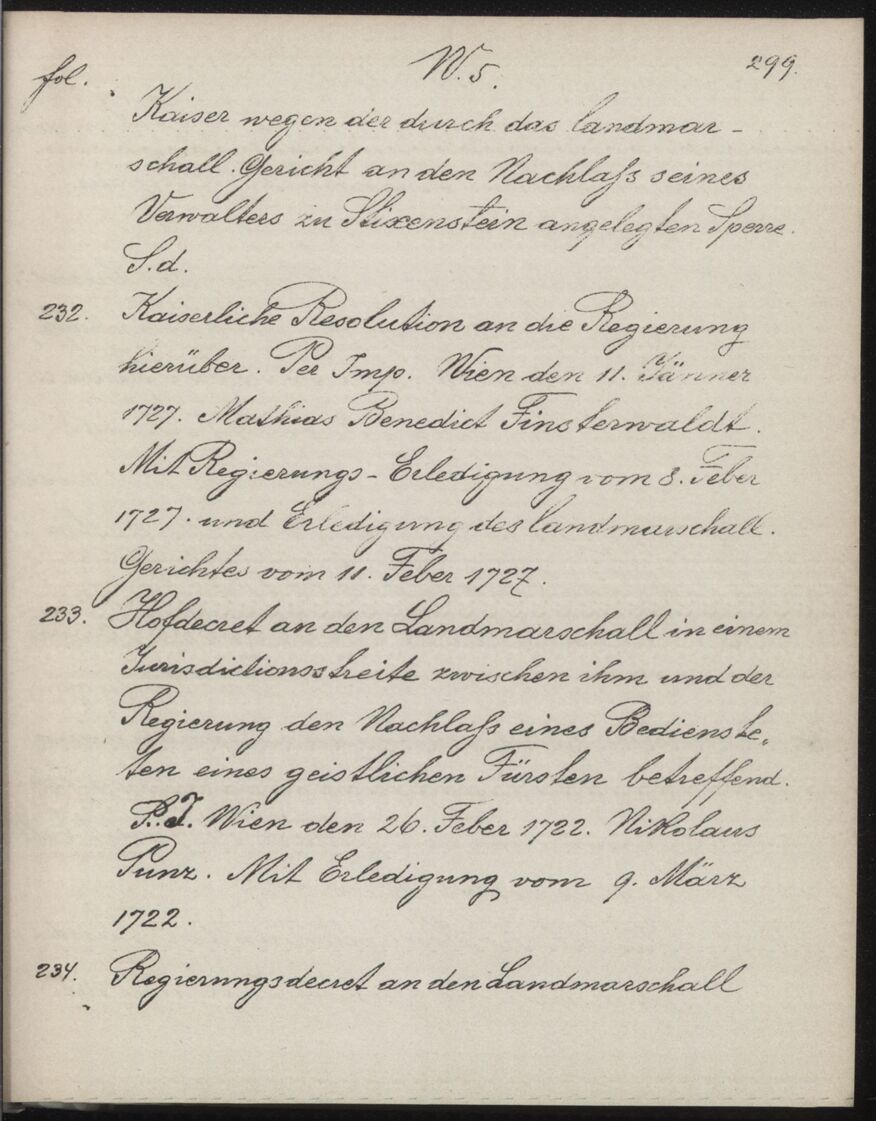 fol. W. 5. 299.
Kaiser wegen der durch das landmar-
schall. Gericht an den Nachlaß seines
Verwalters zu Stixenstein angelegten Sperre.
S. d.
232. Kaiserliche Resolution an die Regierung
hierüber. Per Imp. Wien den 11. Jänner
1727. Mathias Benedict Finsterwaldt.
Mit Regierungs-Erledigung vom 8. Feber
1727. und Erledigung des landmarschall.
Gerichtes vom 11. Feber 1727.
233. Hofdecret an den Landmarschall in einem
Jurisdictionsstreite zwischen ihm und der
Regierung den Nachlaß eines Bedienste-
ten eines geistlichen Fürsten betreffend.
P. I. Wien den 26. Feber 1722. Nikolaus
Punz. Mit Erledigung vom 9. März
1722.
234. Regierungsdecret an den Landmarschall